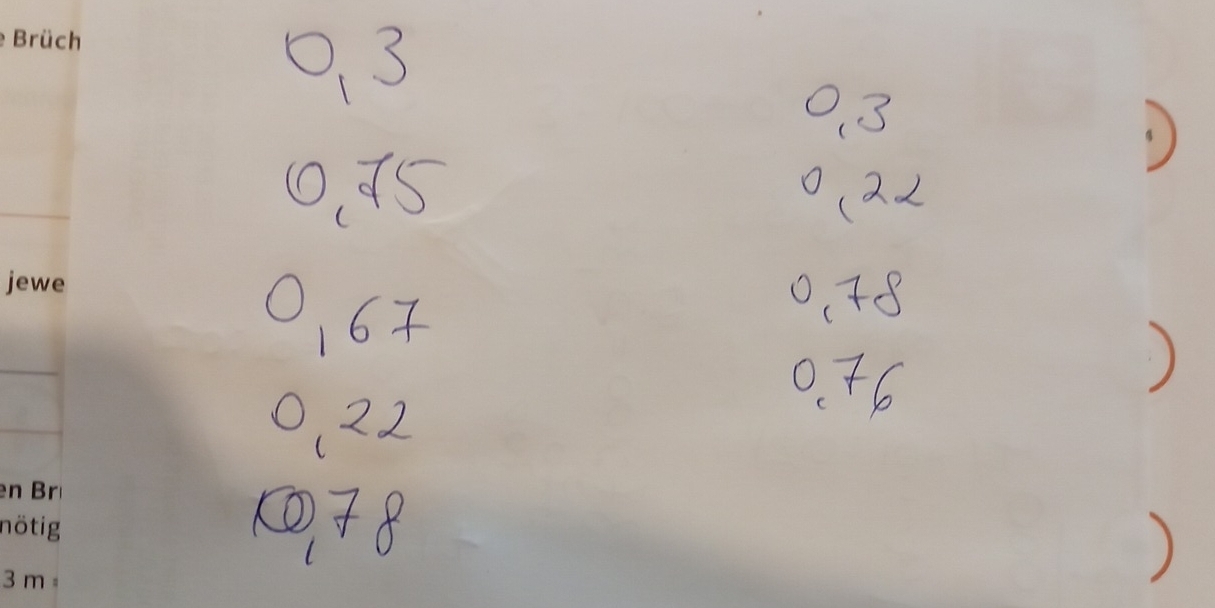 e Brüch
jewe
en Br
nötig
3 m
0,3
0,75
0,67
0,22
0,78
0,3
0,22
0,78
0,76